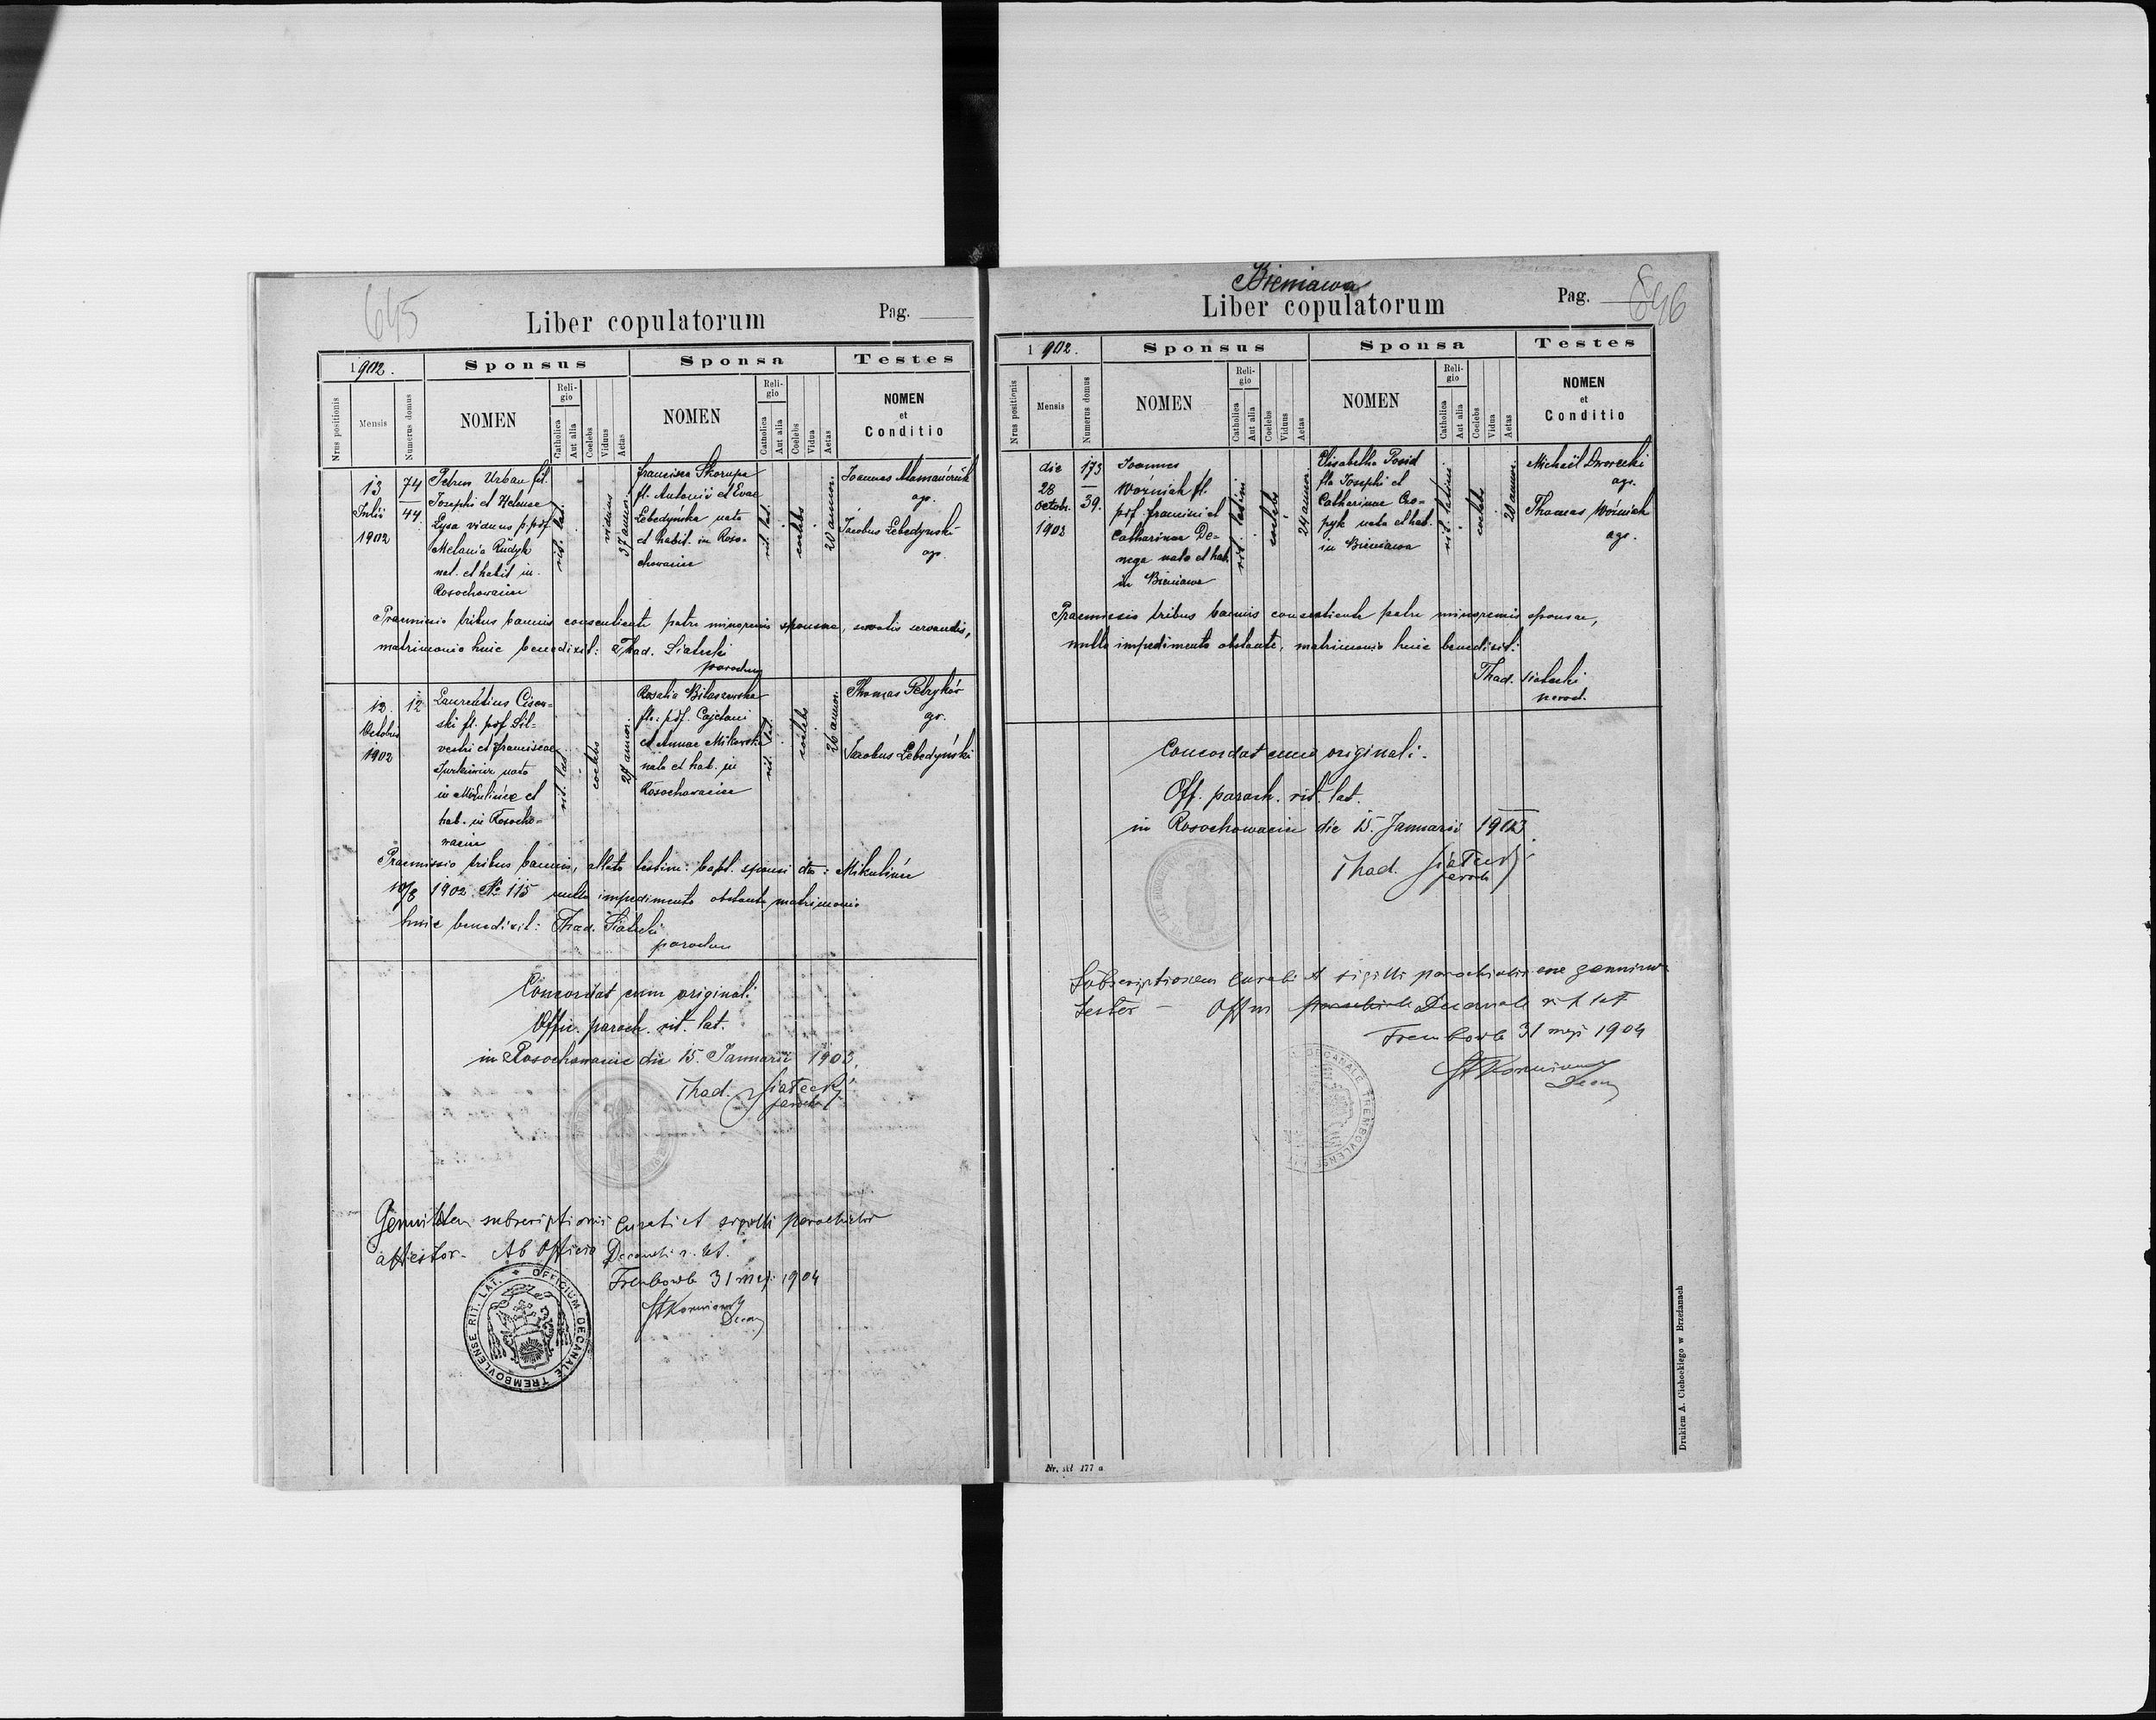 645
Liber copulatorum
Pag.
1902.
Sponsus
Sponsa
Testes
Nrus positionis
Mensis
Numerus domus
NOMEN
Religio
Catholica
Aut alia
Coelebs
Viduus
Aetas
NOMEN
Religio
Catholica
Aut alia
Coelebs
Vidua
Aetas
NOMEN
et
Conditio
13
Julii
1902
74
44.
Petrus Urban fil.
Josephi et Helenae
Lysa viduus p.
Melania Rudyk
nat. et habit in
Rosochowaciec
rit. lat.
viduus
37 annor.
Francisca Skorupa
fl. Antonii et Evae
Lebedyńska nata
et habit. in Roso-
chowaciec
rit. lat.
coelebs
20 annor.
Joannes
agr.
Jacobus Lebedynski
agr.
Praemissis tribus bannis consentiente patre minorenis sponsae, servatis servandis,
matrimonio huic benedixit: Thad. Siatecki
parochus
12.
Octobris
1902
12
Laurentius Cison-
ski fl. pdf. Sil-
vestri et Franciscae
nato
in Mikulińce et
hab. in Rosocho-
waciec
rit. lat.
coelebs
27 annor.
Rosalia Bilaszewska
fla. pdf. Cajetani
et Annae
nata et hab. in
Rosochowaciec
rit. lat.
coelebs
20 annor.
Thomas Petryków
gr.
Jacobus Lebedyński
Praemissis tribus bannis, allato testim: bapt. sponsi dto: Mikulińce
1902 No 115 nullo impedimento obstante matrimonio
huic benedixit: Thad. Siatecki
parochus
Concordat cum originali
Offic. paroch. rit. lat.
in Rosochowaciec die 15. Januarii 1903.
Thad. Siatecki
paroch
subscriptionis curati et sigilli parochialis
attestor. Ab Officio Decanali r. lat.
Trembowla 31 maji 1904
OFFICIUM DECANALE TREMBOVLENSE RIT. LAT.
Bieniawa
Liber copulatorum
Pag.
646
1902.
Sponsus
Sponsa
Testes
Nrus positionis
Mensis
Numerus domus
NOMEN
Religio
Catholica
Aut alia
Coelebs
Viduus
Aetas
NOMEN
Religio
Catholica
Aut alia
Coelebs
Vidua
Aetas
NOMEN
et
Conditio
die
28
Octobr.
1902
173
39.
Joannes
Woźniak fl.
pdf. Francisci et
Catharinae De-
nega nato et hab.
in Bieniawa
rit. latini
coelebs
24 annor.
Elisabetha Posid
fla Josephi et
Catharinae
nata et hab.
in Bieniawa
rit. latini
coelebs
20 annor.
Michaël Dworecki
agr.
Thomas Woźniak
agr.
Praemissis tribus bannis consentiente patre minorenis sponsae,
nullo impedimento obstante, matrimonio huic benedixit:
Thad. Siatecki
paroch.
Concordat cum originali.
Off. paroch. rit. lat.
in Rosochowaciec die 15. Januarii 1903
Thad. Siatecki
paroch
Subscriptionem curati et sigilli parochialis esse genuinum
testor Decanale rit lat
Trembowla 31 maji 1904
DECANALE TREMBOVLENSE
Drukiem A. Cichockiego w Brzeżanach